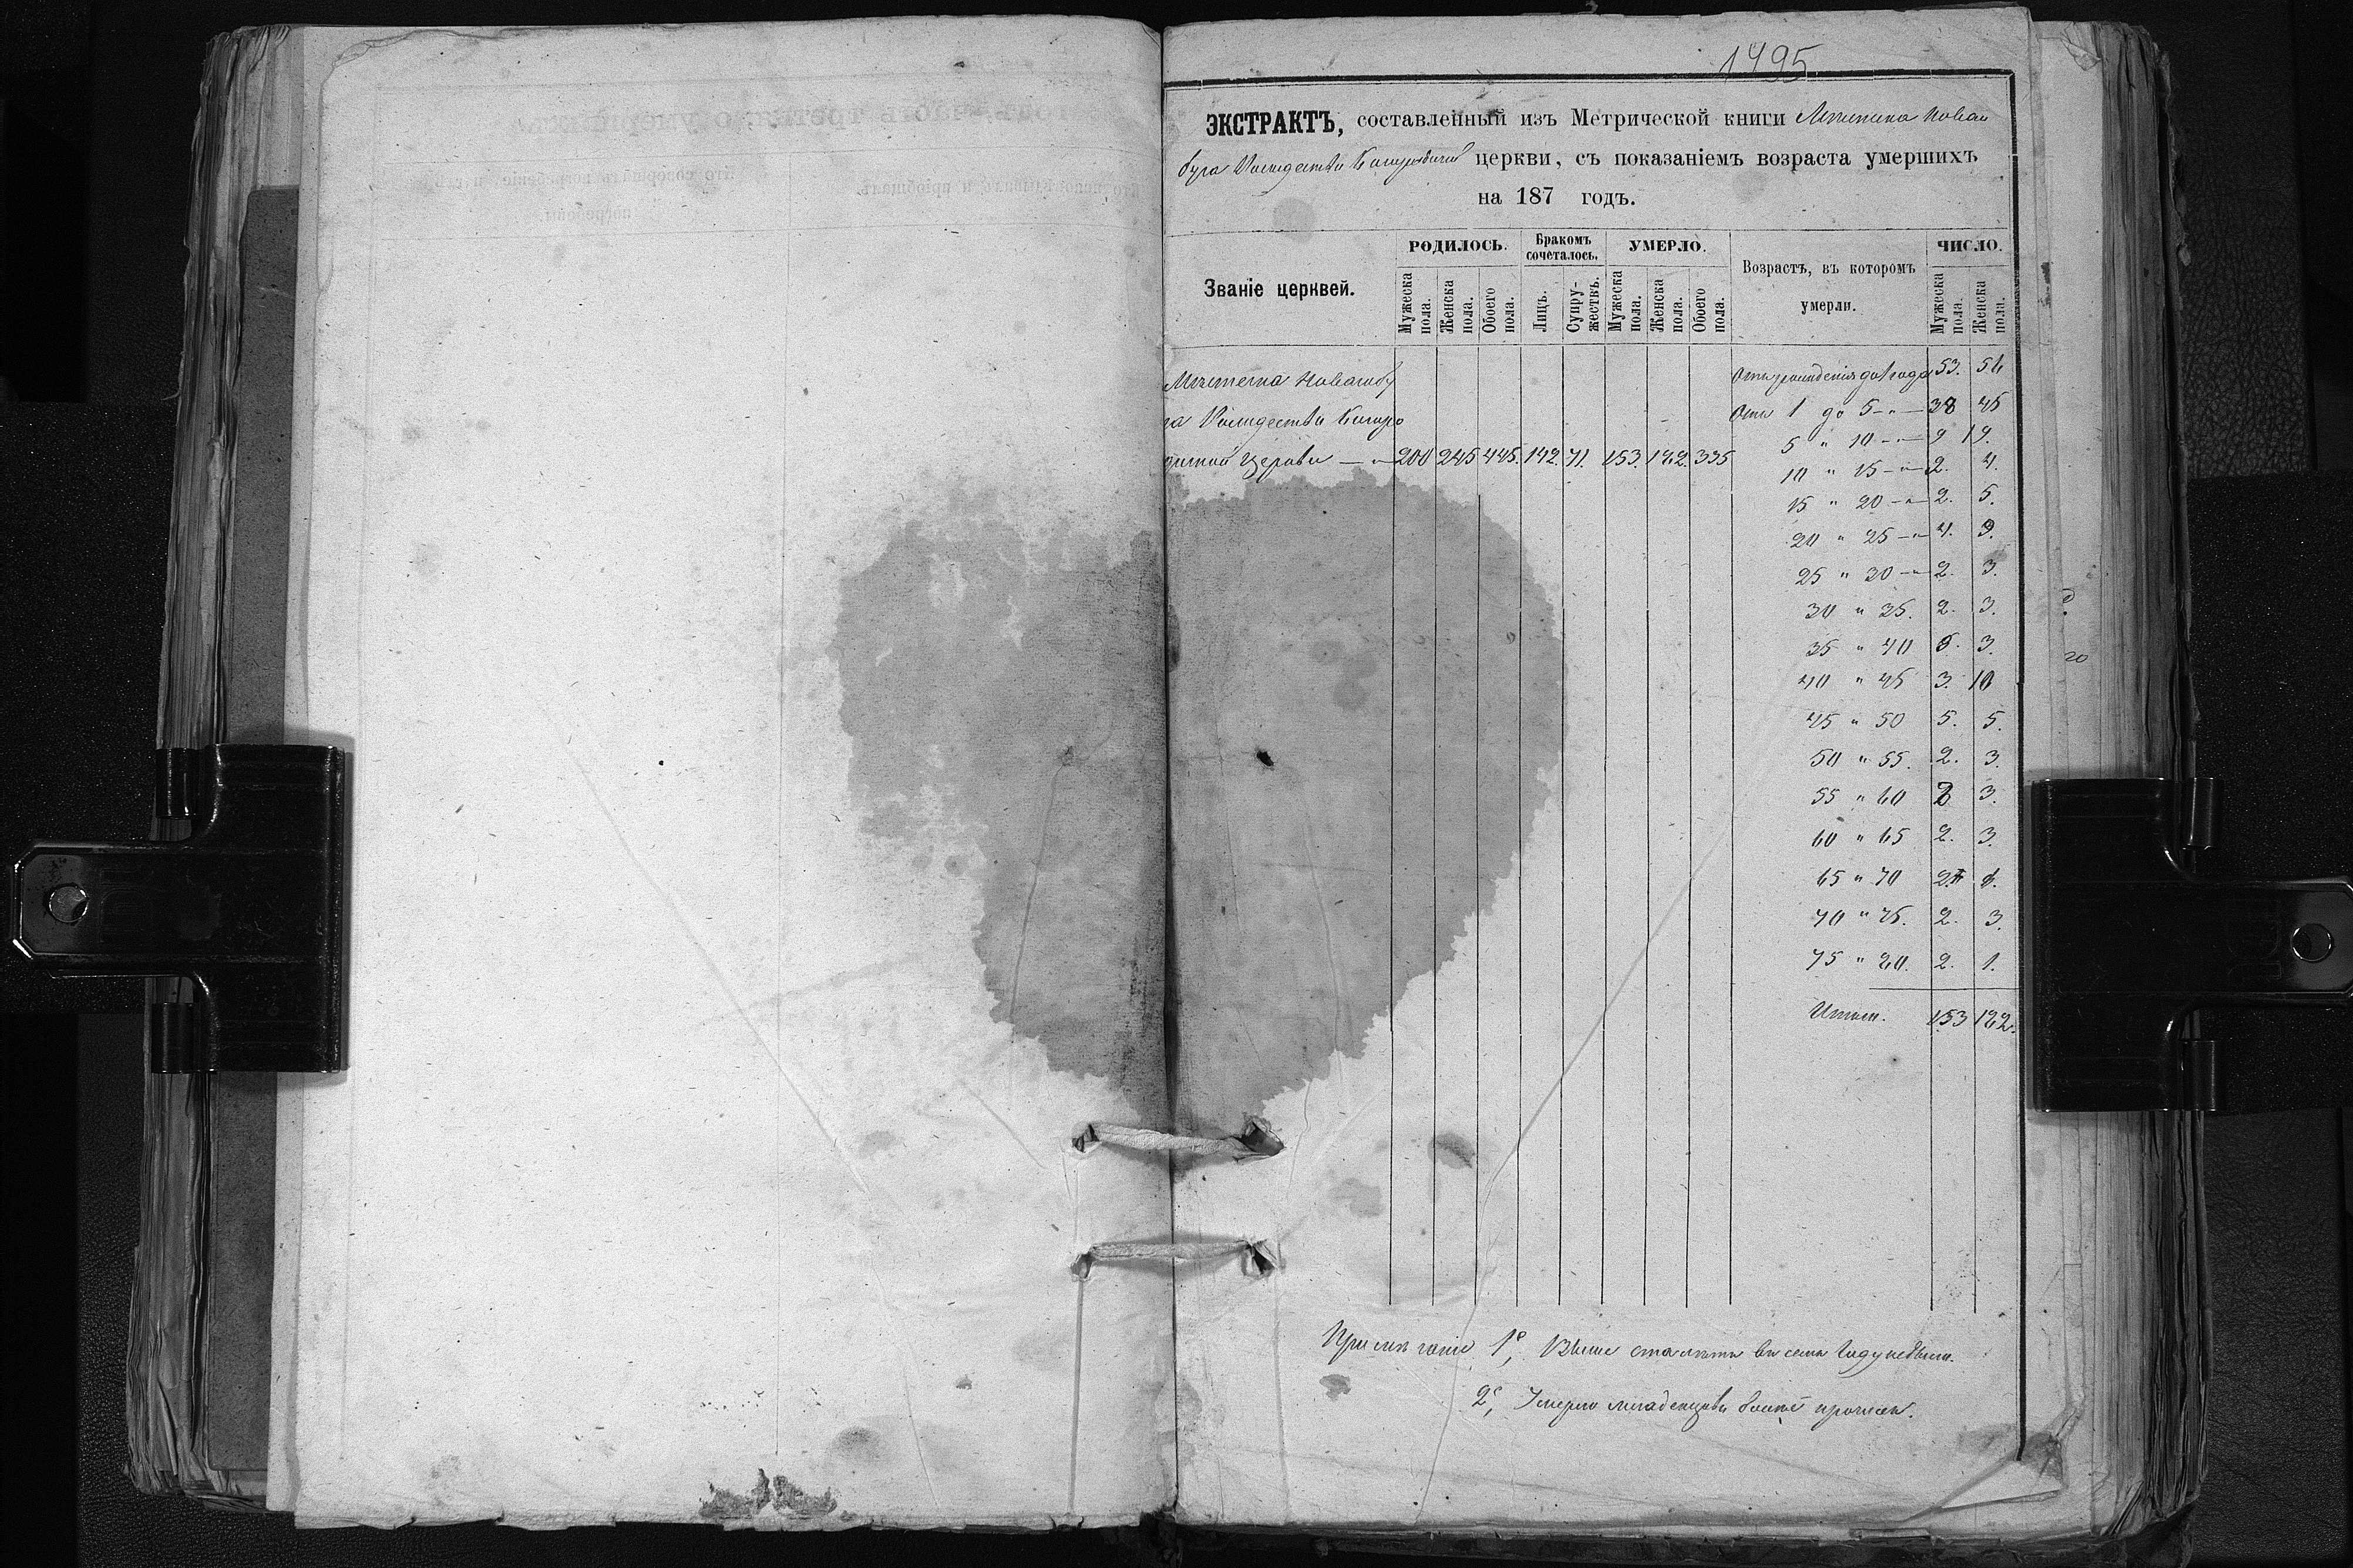 1495
ЭКСТРАКТЪ, составленный изъ Метрической книги Мѣстечка Новаго
буга Рождество Богородичной церкви, съ показаніемъ возраста умершихъ
на 187 годъ.
Званіе церквей.
РОДИЛОСЬ.
Мужеска пола.
Женска пола.
Обоего пола.
Бракомъ сочеталось.
Лицъ.
Супружествъ.
УМЕРЛО.
Мужеска пола.
Женска пола.
Обоего пола.
Возрастъ, въ которомъ умерли.
ЧИСЛО.
Мужеска пола.
Женска пола.
Мѣстечка Новагобу
га Рождество Богоро
дичной Церкви — " 200 245 445. 142. 71. 153. 182. 335
Отъ рожденія до 1 года 53.
Отъ 1 до 5 — " — 38 45
5 " 10 — " — 9 19.
10 " 15 — " — 2. 4.
15 " 20 — " — 2. 5.
20 " 25 — " 4. 9.
25 " 30 — " 2. 3.
30 " 35. 2. 3.
35 " 40 3.
40 " 45 3. 10
45 " 50 5. 5.
50 " 55. 2. 3.
55 " 60 3.
60 " 65 2. 3.
65 " 70
70 " 75. 2. 3.
75 " 80. 2. 1.
Итого. 153 182.
Примѣчаніе 1е, Выше ста лѣтъ въ семъ Году небыло.
2е, Умерло младенцовъ болѣе